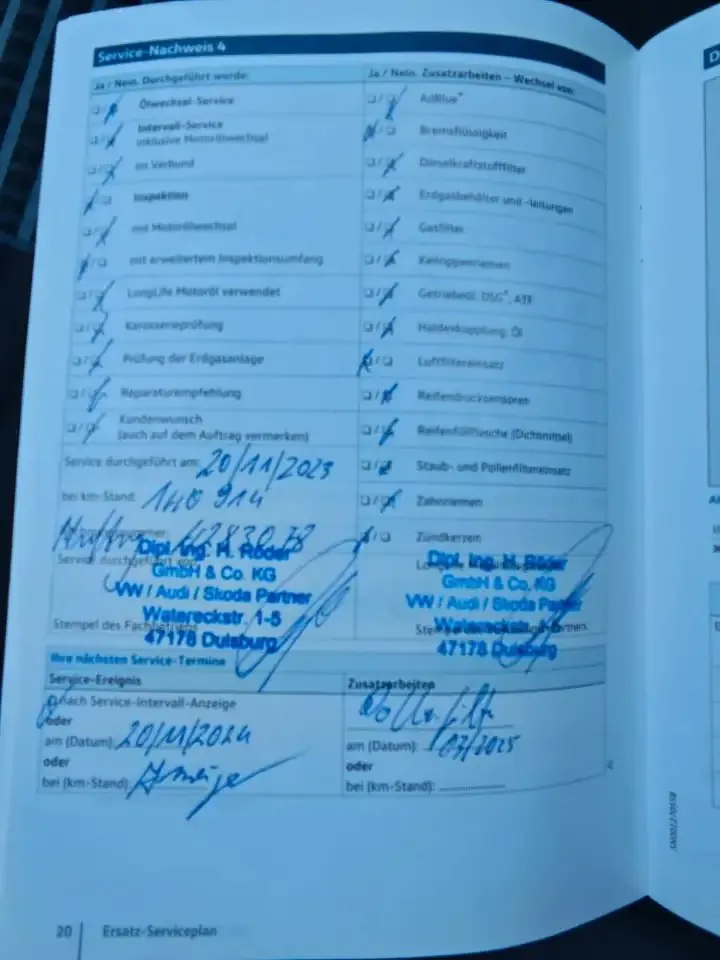 Service-Nachweis 4
Ja / Nein. Durchgeführt wurde:
Ölwechsel-Service
Intervall-Service
inklusive Motorölwechsel
im Verbund
Inspektion
mit Motorölwechsel
mit erweitertem Inspektionsumfang
LongLife Motoröl verwendet
Karosserieprüfung
Prüfung der Erdgasanlage
Reparaturempfehlung
Kundenwunsch
(auch auf dem Auftrag vermerken)
Service durchgeführt am: 20/11/2023
bei km-Stand: 140 914
Service durchgeführt von
Dipl. Ing. H. Röder
GmbH & Co. KG
VW / Audi / Skoda Partner
Watereckstr. 1-5
47178 Duisburg
Stempel des Fachbetriebs
Ja / Nein. Zusatzarbeiten – Wechsel von:
AdBlue®
Bremsflüssigkeit
Dieselkraftstofffilter
Erdgasbehälter und -leitungen
Gasfilter
Keilrippenriemen
Getriebeöl: DSG®, ATF
Haldexkupplung: Öl
Luftfiltereinsatz
Reifendruckssensoren
Reifenfüllflasche (Dichtmittel)
Staub- und Pollenfiltereinsatz
Zahnriemen
Zündkerzen
Dipl. Ing. H. Röder
GmbH & Co. KG
VW / Audi / Skoda Partner
Watereckstr. 1-5
47178 Duisburg
Ihre nächsten Service-Termine
Service-Ereignis
nach Service-Intervall-Anzeige
oder
am (Datum): 20/11/2024
oder
bei (km-Stand): Anzeige
Zusatzarbeiten
am (Datum): 03/2025
oder
bei (km-Stand):
20
Ersatz-Serviceplan